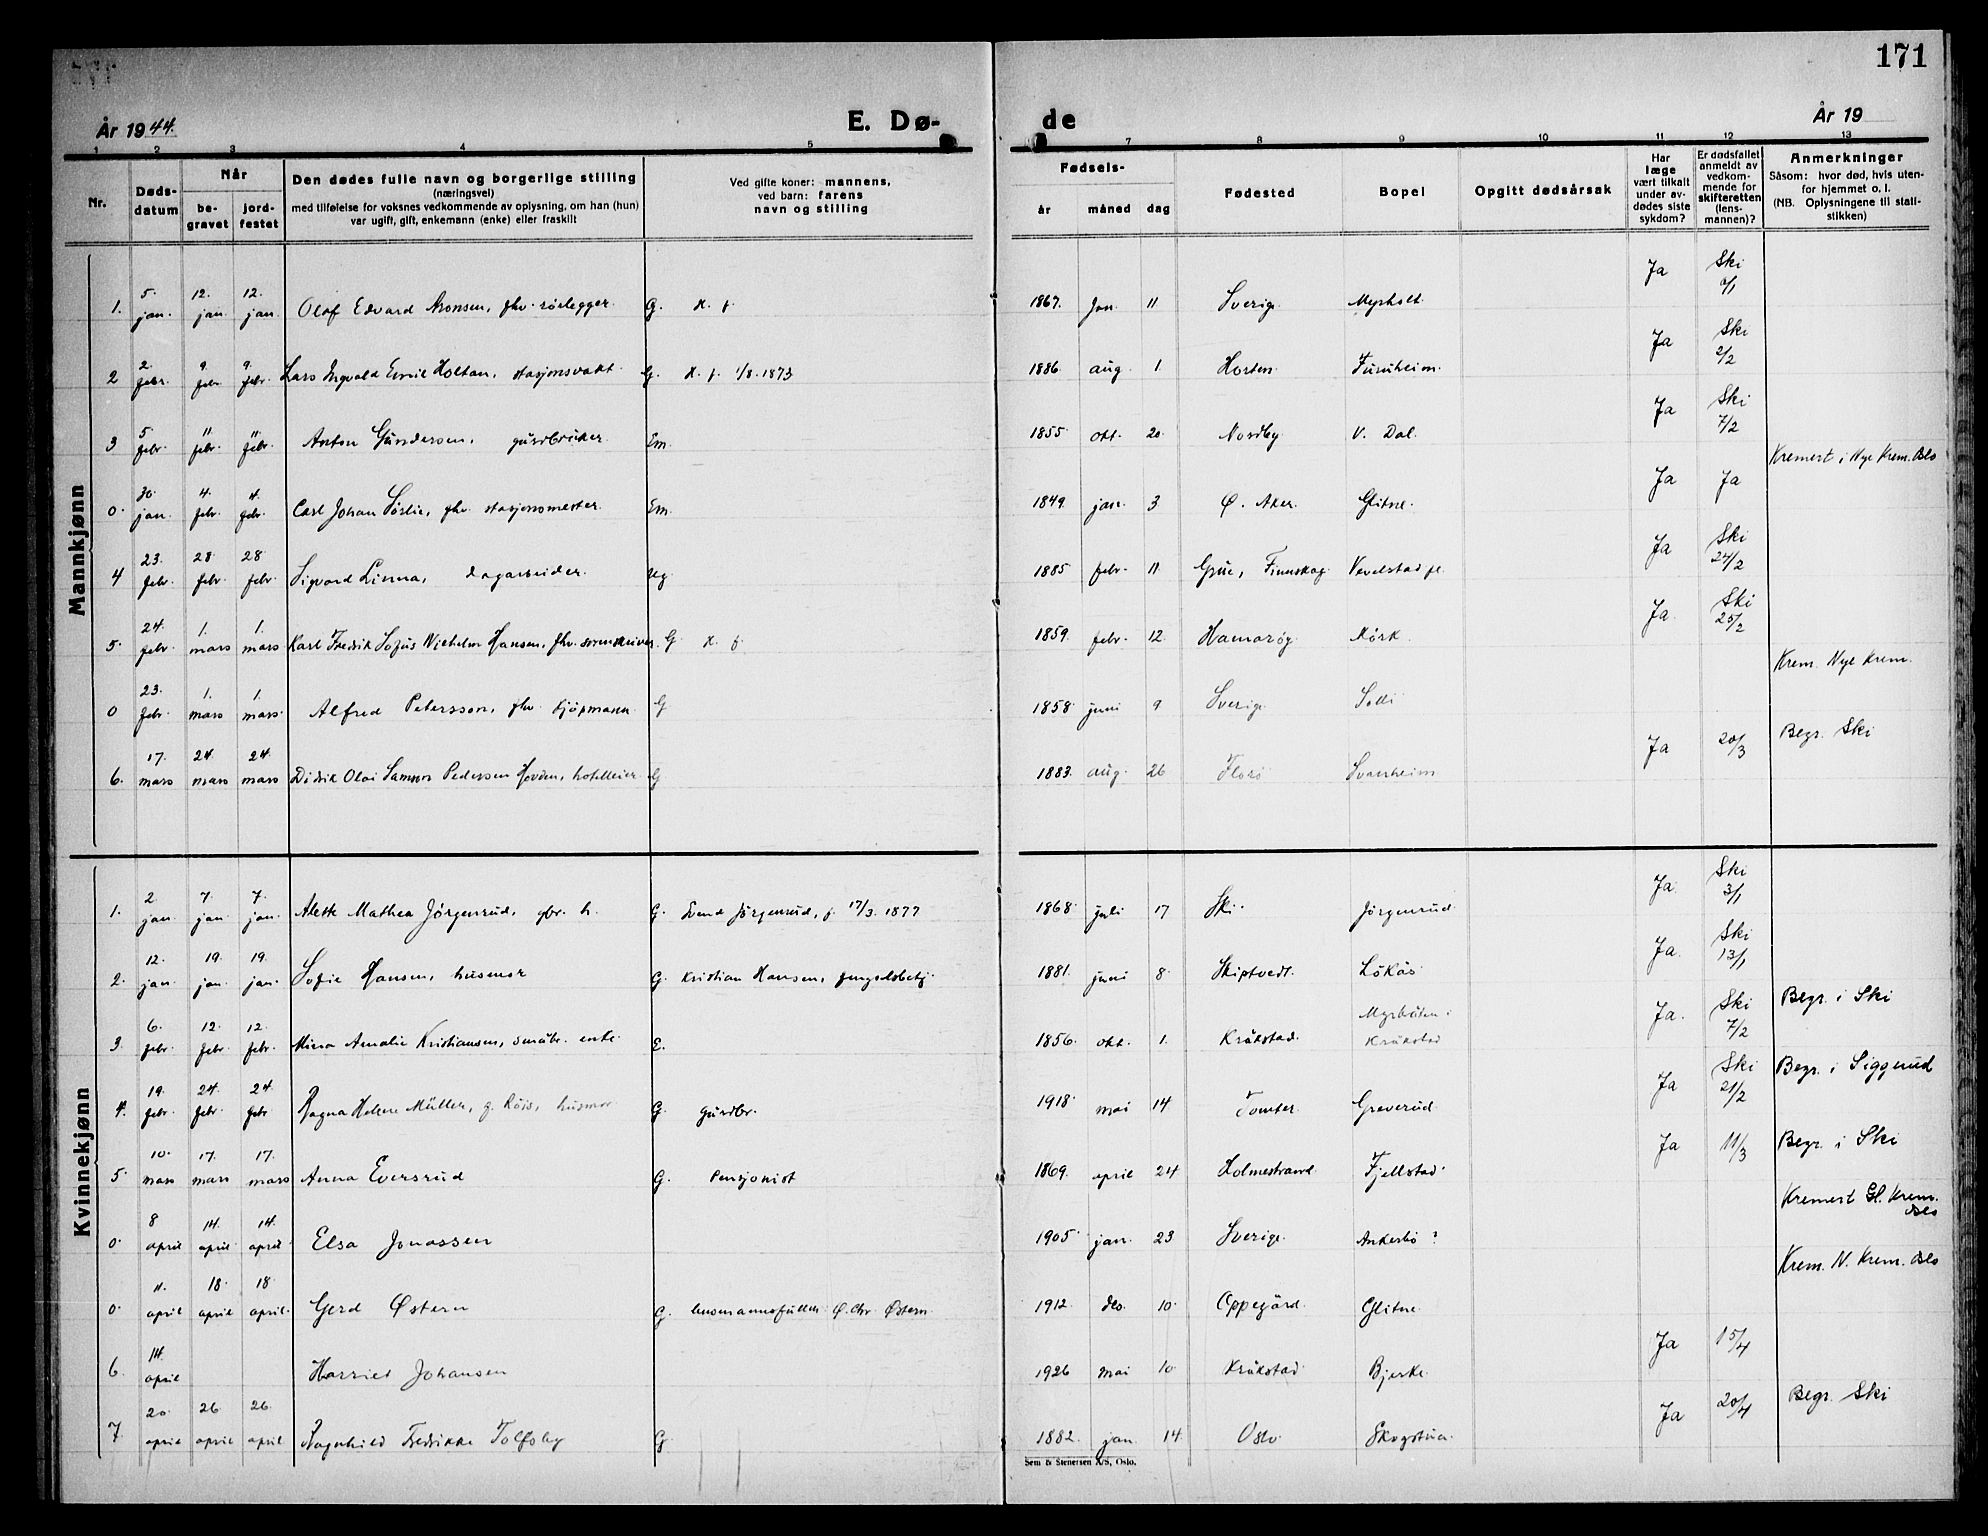 171
År 1944.
E. Dø-
de
År 19
1 2 3 4 5
7 8 9 10 11 12 13
Nr.
Døds-
datum
Når
be-
gravet
jord-
festet
Den dødes fulle navn og borgerlige stilling
(næringsvei)
med tilføielse for voksnes vedkommende av oplysning, om han (hun)
var ugift, gift, enkemann (enke) eller fraskilt
Ved gifte koner: mannens,
ved barn: farens
navn og stilling
Fødsels-
år måned dag
Fødested
Bopel
Opgitt dødsårsak
Har
læge
vært tilkalt
under av-
dødes siste
sykdom?
Er dødsfallet
anmeldt av
vedkom-
mende for
skifteretten
(lens-
mannen)?
Anmerkninger
Såsom: hvor død, hvis uten-
for hjemmet o. l.
(NB. Oplysningene til stati-
stikken)
Mannkjønn
1. 5. jan. 12. jan. 12. jan. Olof Edvard Aronsen, fhv. rörlegger. G. K. f. 1867. Jan. 11 Sverige Myrholt Ja Ski
2 2. febr. 9. febr. 9. febr. Lars Ingvald Emil Holtan, stasjonsvakt. G. K. f. 1/8. 1873 1886. aug. 1. Horten. Furuheim. Ja Ski 2/2
3 5. febr. 11. febr. 11. febr. Anton Gundersen, gårdbruker Em. 1855. okt. 20. Nordby V. Dal. Ja Ski 7/2
0. 30. jan. 4. febr. 4. febr. Carl Johan Sörlie, fhv. stasjonsmester. Em. 1849. jan. 3 Ø. Aker. Glitne. Ja Ja Kremert i Nye Krem. Oslo
4 23. febr. 28. febr. 28. febr. Sigvard Linna, dagarbeider. Ug. 1885 febr. 11. Grue, Finnskog Vevelstad pl. Ja Ski 24/2
5. 24. febr. 1. mars 1. mars Karl Fredrik Sofus Vilhelm Hansen, fhv. sorenskriver G. K. f. 1859. febr. 12. Hamarøy Mörk. Ja. Ski 25/2
0 23. febr. 1. mars 1. mars Alfred Petersson, fhv. kjöpmann G 1858. juni 9 Sverige Solli Krem. Nye Krem.
6. 17. mars 24. mars 24. mars Didrik Olai Samson Pedersen Hovden, hotelleier. G 1883. aug. 26 Florö Svanheim Ja 20/3 Begr. Ski
Kvinnekjønn
1. 2 jan. 7. jan. 7. jan. Alette Mathea Jörgenrud, gbr. h. G. Svend Jörgenrud, f. 17/3. 1877 1868. juli 17 Ski. Jörgenrud Ja. Ski 3/1
2. 12. jan. 19. jan. 19. jan. Sofie Hansen, husmor G. Kristian Hansen, fengselsbetj. 1881. juni 8. Skiptvedt. Lökås Ja. Ski 13/1
3. 6. febr. 12. febr. 12. febr. Mina Amalie Kristiansen, småbr. enke. E. 1856. okt. 1. Kråkstad. Myrbråten i Kråkstad Ja. Ski 7/2 Begr. i Ski
4. 19. febr. 24. febr. 24. febr Ragna Helene Müller, f. Röis, husmor G. gårdbr. 1918. mai 14 Tomter. Greverud. Ja Ski 21/2 Begr. i Siggerud
5. 10. mars 17. mars 17. mars Anna Eversrud G. Pensjonist 1869. april 24 Holmestrand. Fjellstad. Ja 11/3 Begr. i Ski
0. 8 april 14. april 14. april. Elsa Jonassen 1905. jan. 23 Sverige. Ankerbo ? Kremert Gl. Krem. Oslo
0. 11. april 18. april 18. april. Gerd Østern G. Ø. Chr. Østern. 1912. des. 10. Oppegård. Glitne. Krem. N. Krem. Oslo
6. 14. april Harriet Johansen 1926 mai 10. Kråkstad. Bjerke. Ja 15/4
7. 20. april 26. april 26. april Ragnhild Fredrikke Tolfsby G. 1882. jan. 14. Oslo. Skogstua. Ja 20/4 Begr. Ski
Sem & Stenersen A/S, Oslo.